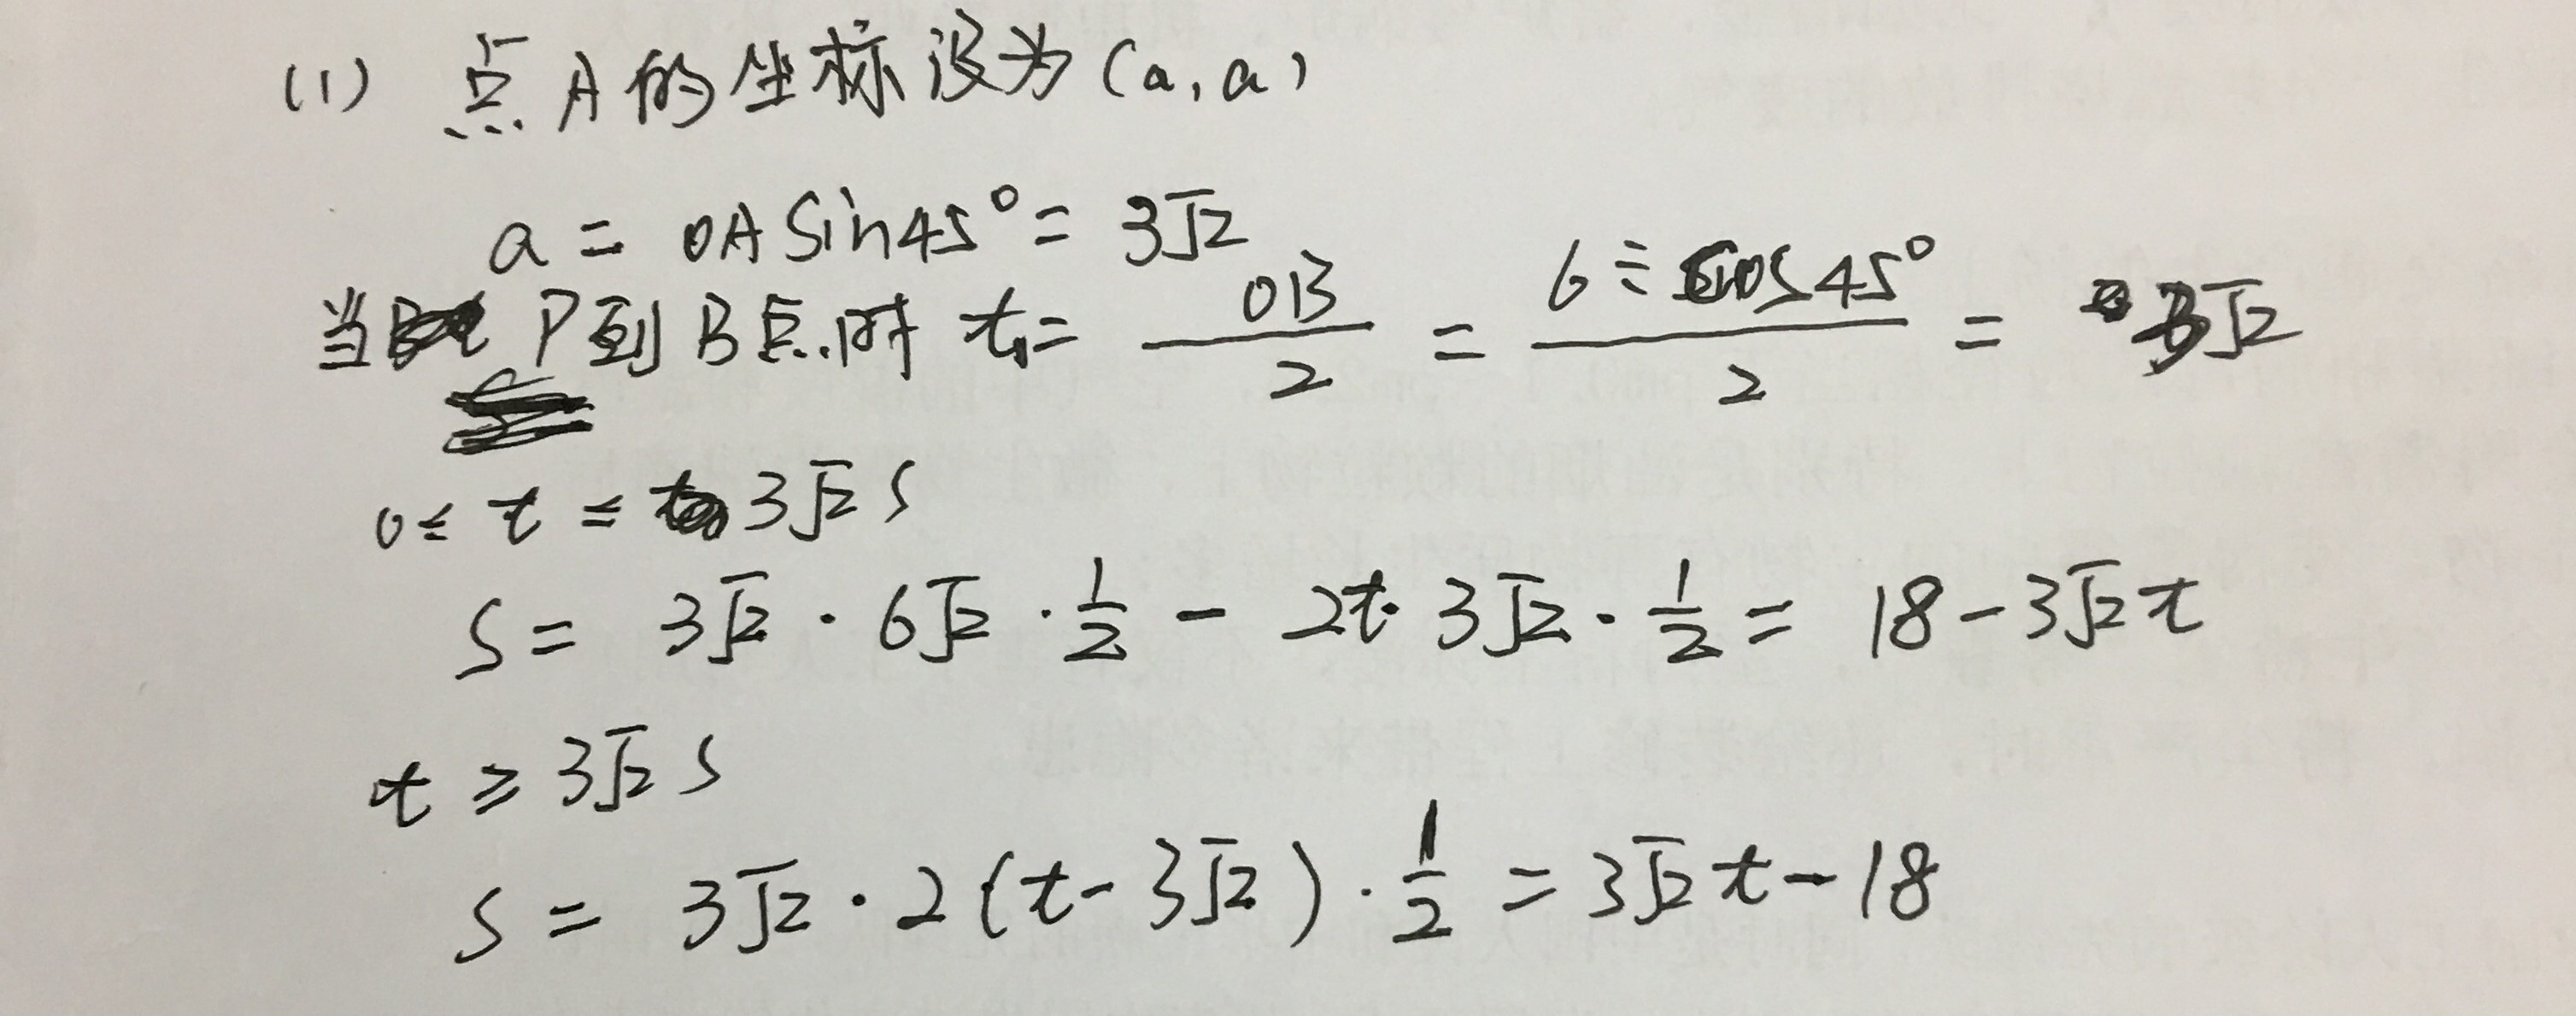 (1) 点A的坐标设为(a,a)
a = OA Sin45° = 3√2
当 P到B点时 t₁ = OB/2 = 6÷cos45°/2 = 3√2
0 ≤ t ≤ 3√2 s
S = 3√2 · 6√2 · 1/2 - 2t · 3√2 · 1/2 = 18 - 3√2t
t ≥ 3√2 s
S = 3√2 · 2(t - 3√2) · 1/2 = 3√2t - 18